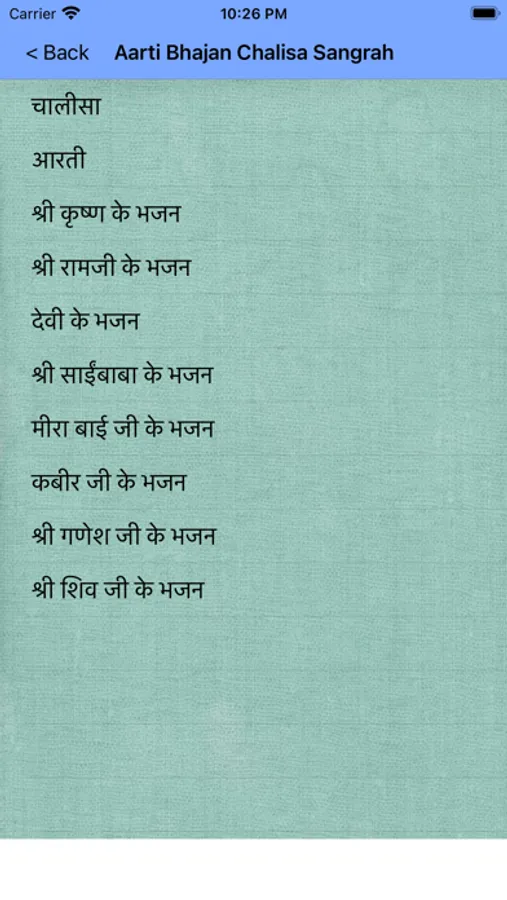 Carrier 10:26 PM
< Back Aarti Bhajan Chalisa Sangrah
चालीसा
आरती
श्री कृष्ण के भजन
श्री रामजी के भजन
देवी के भजन
श्री साईंबाबा के भजन
मीरा बाई जी के भजन
कबीर जी के भजन
श्री गणेश जी के भजन
श्री शिव जी के भजन